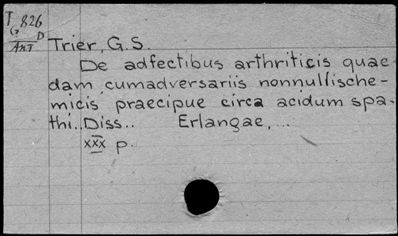 T 826
G D
ANT
Trier, G.S.
De adfectibus arthriticis quae-
dam cum adversariis nonnullis che-
micis praecipue circa acidum spa-
thi.. Diss.. Erlangae, ...
xxx p.